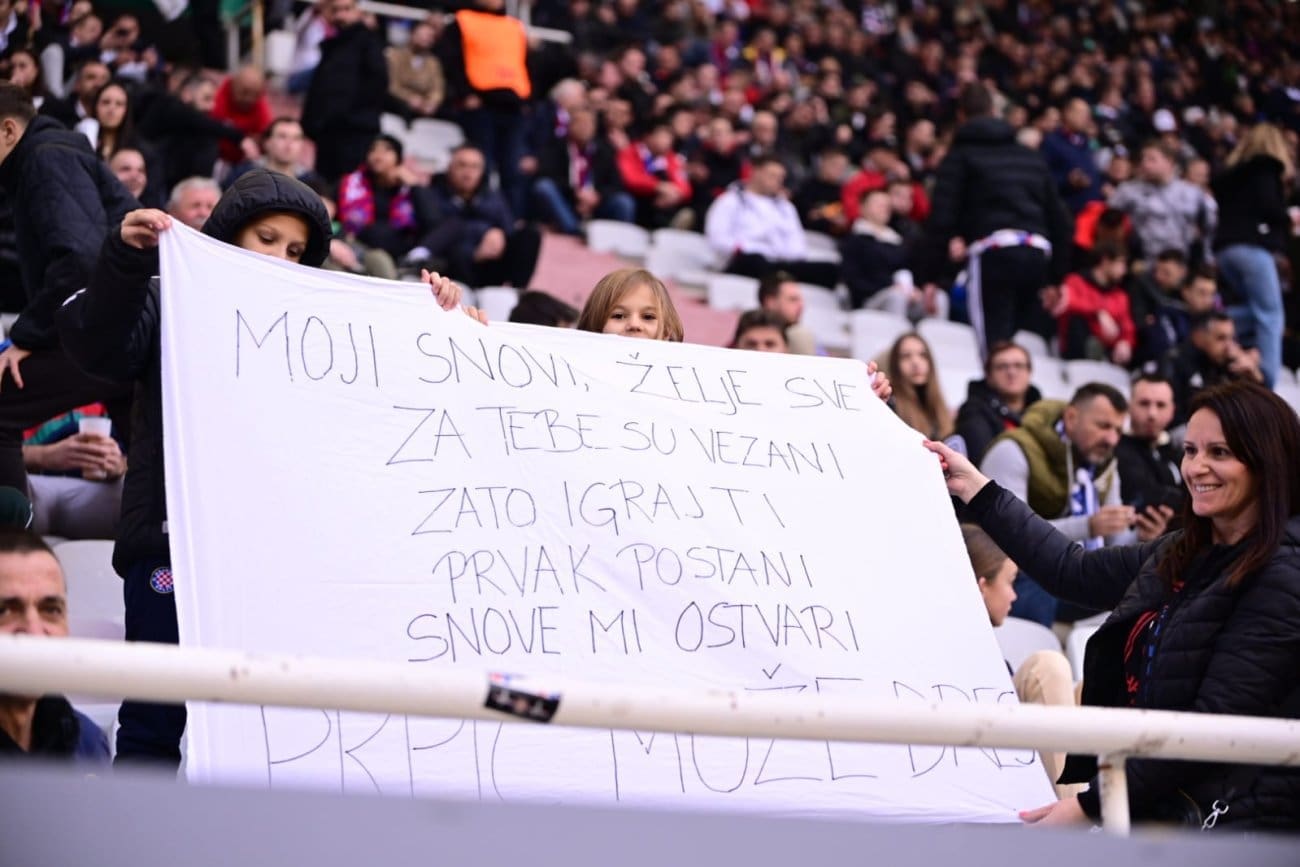 MOJI SNOVI, ŽELJE SVE
ZA TEBE SU VEZANI
ZATO IGRAJ TI
PRVAK POSTANI
SNOVE MI OSTVARI
PRPIĆ MOŽE DRES